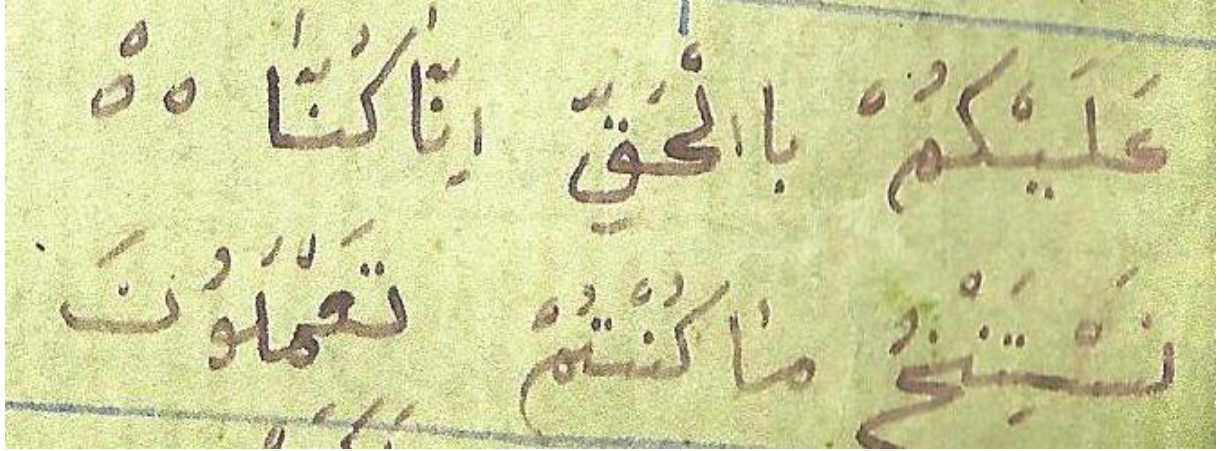 عَلَيْكُمْ باالْحَقِّ اِنّٰا كُنّٰا ه هْ
نَسْتَنْخُ مٰا كُنْتُمْ تَعْمَلُونَ